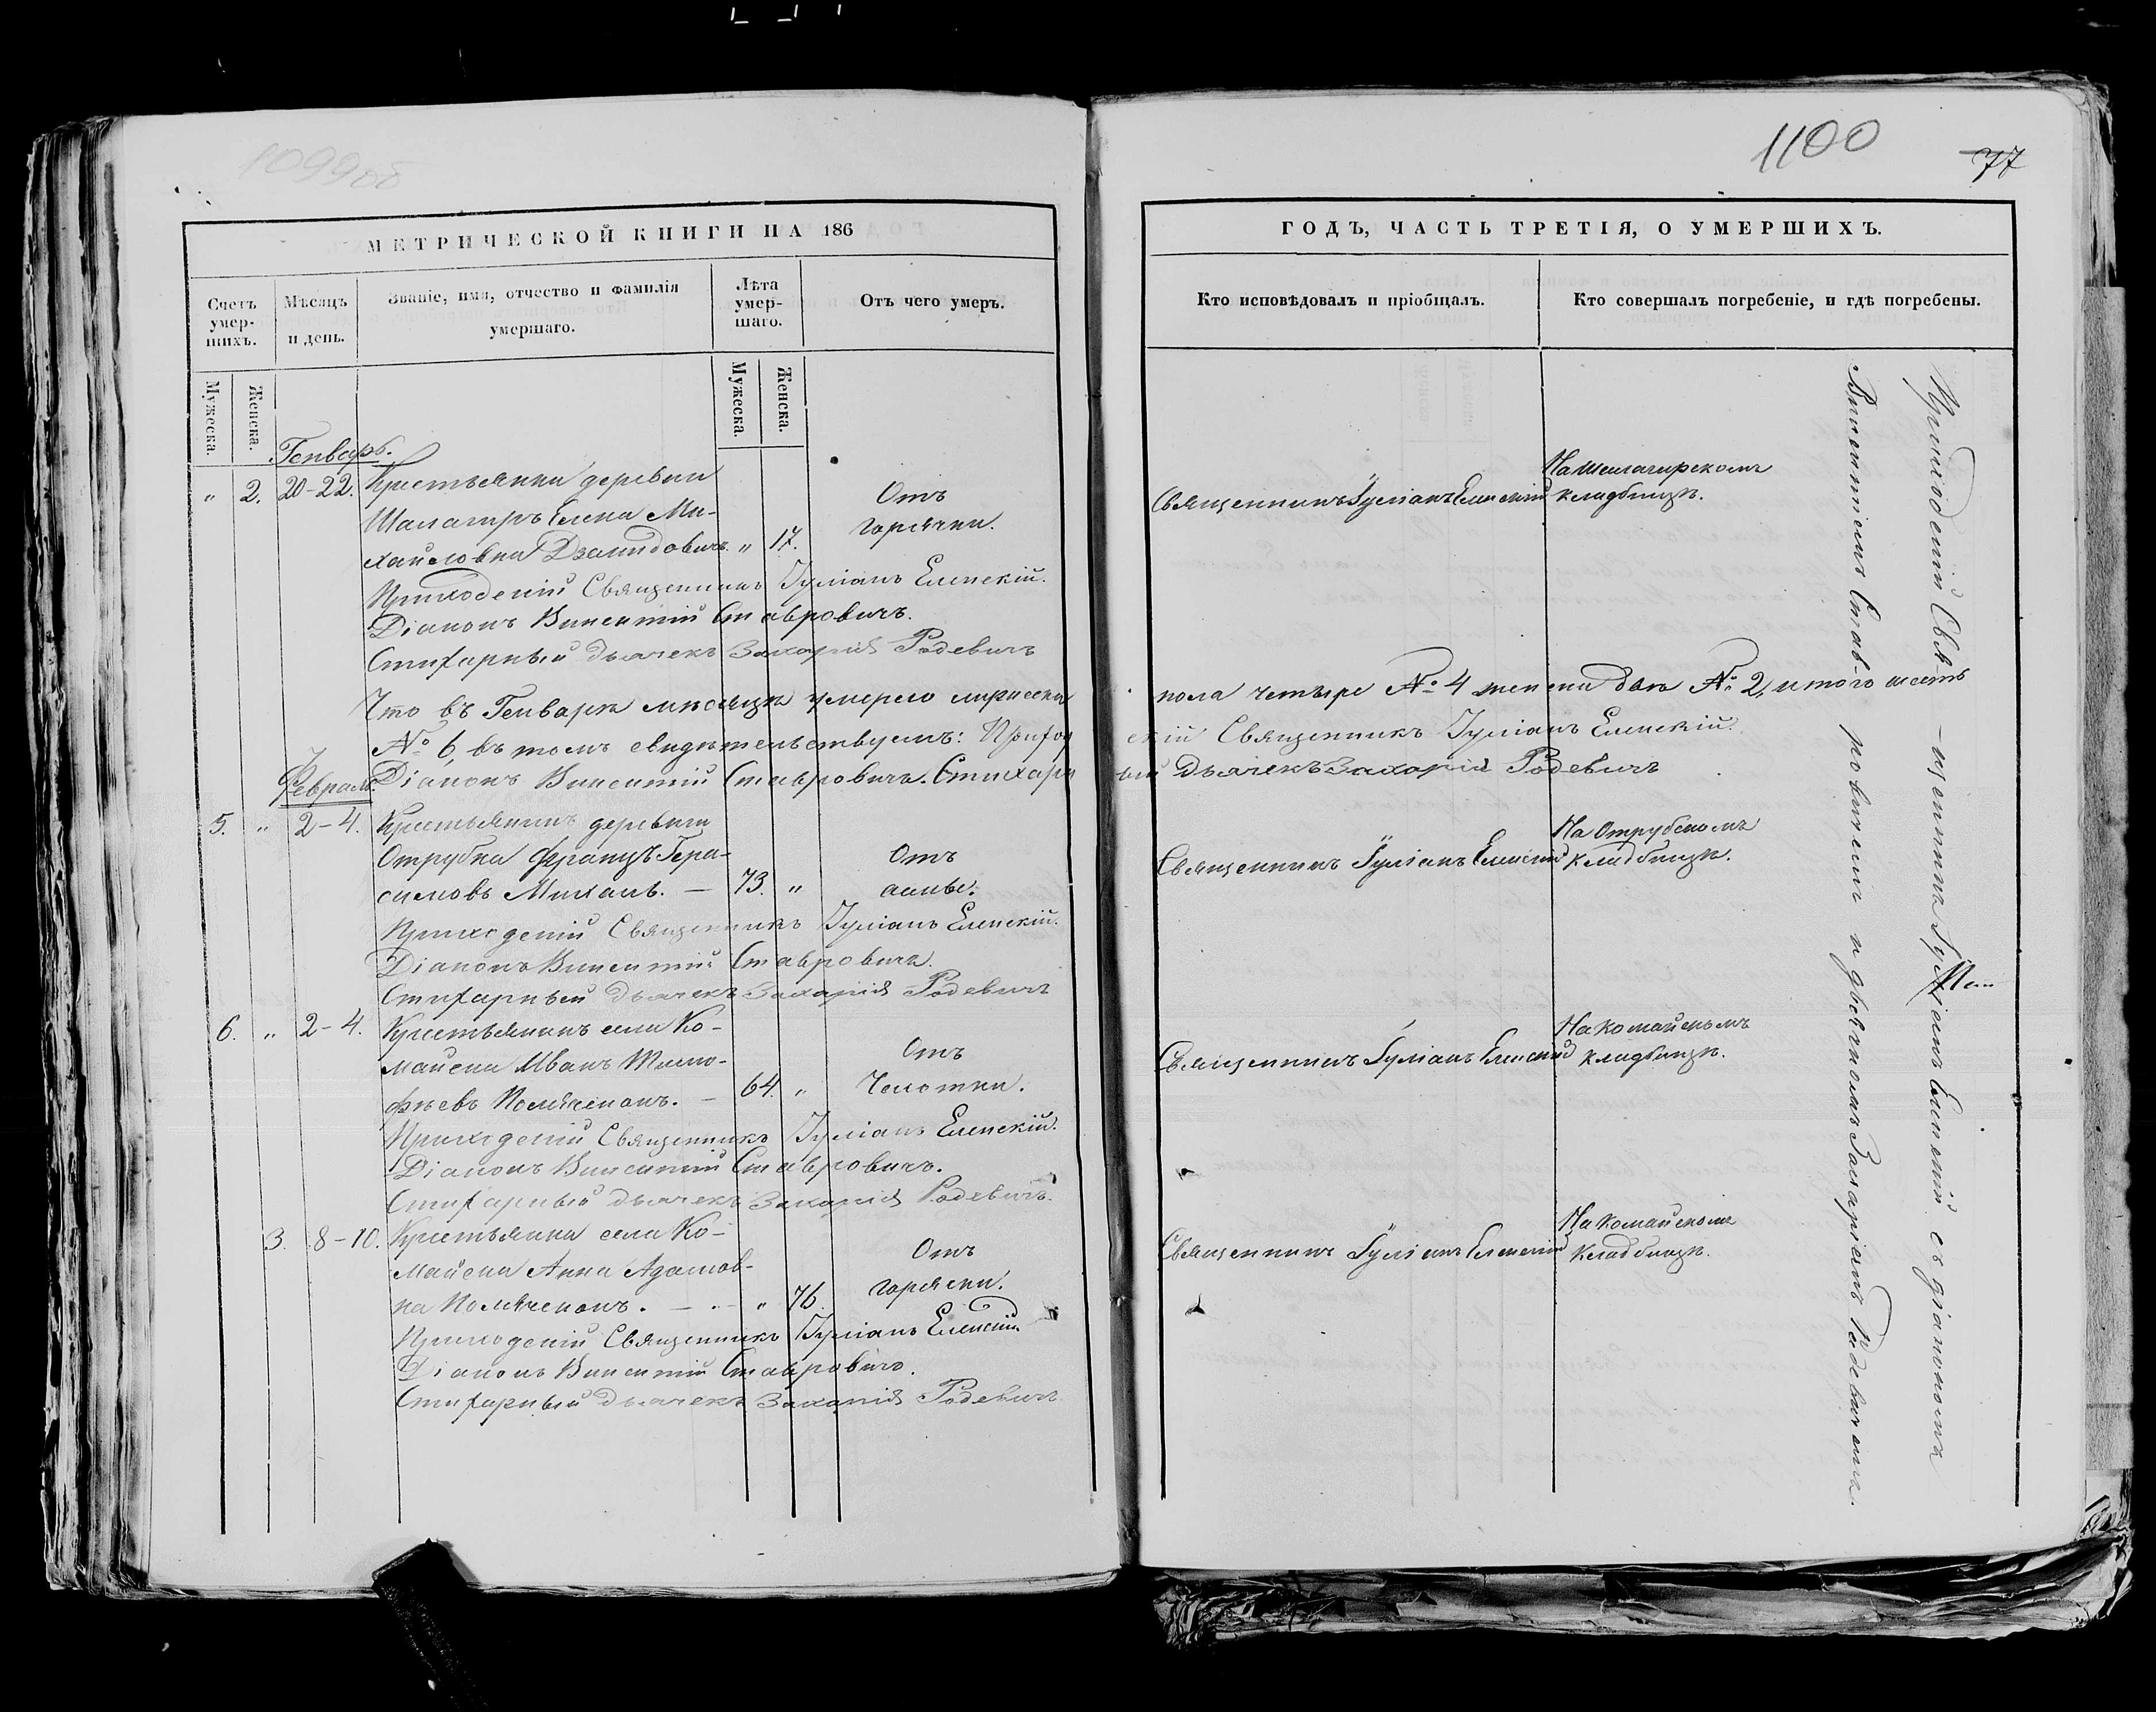 1099об
1100
77
МЕТРИЧЕСКОЙ КНИГИ НА 186
ГОДЪ, ЧАСТЬ ТРЕТІЯ, О УМЕРШИХЪ.
Счетъ умер-шихъ.
Мѣсяцъ и день.
Званіе, имя, отчество и фамилія умершаго.
Лѣта умер-шаго.
Отъ чего умеръ.
Кто исповѣдовалъ и пріобщалъ.
Кто совершалъ погребеніе, и гдѣ погребены.
Мужеска.
Женска.
Мужеска.
Женска.
Генварь.
" 2. 20-22. Крестьянка деревни
Елена Ми-
хайловна " 17.
Отъ
горячки.
Священникъ Іуліанъ Еленскій
кладбищѣ.
Приходскій Священникъ Іуліанъ Еленскій.
Діаконъ Викентій Ставровичъ.
Стихарный Дьячекъ Захарія Родевичъ
Что въ Генварѣ мѣсяцѣ умерло мужеска пола четыре № 4 женска два № 2, итого шесть
№ 6, въ томъ свидѣтельствуемъ: Приходскій Священникъ Іуліанъ Еленскій.
Діаконъ Викентій Ставровичъ. Стихарный Дьячекъ Захарія Родевичъ
Февраль.
5. " 2-4. Крестьянинъ деревни
Отрубка Францъ Гера-
симовъ Михаль. — 73. "
Отъ
Священникъ Іуліанъ Еленскій
На Отрубскомъ
кладбищѣ.
Приходскій Священникъ Іуліанъ Еленскій.
Діаконъ Викентій Ставровичъ.
Стихарный Дьячекъ Захарія Родевичъ
6. " 2-4. Крестьянинъ села Ко-
майска Иванъ Тимо-
фѣевъ — 64. "
Отъ
Чахотки.
Священникъ Іуліанъ Еленскій
На Комайскомъ
кладбищѣ.
Приходскій Священникъ Іуліанъ Еленскій.
Діаконъ Викентій Ставровичъ.
Стихарный Дьячекъ Захарія Родевичъ.
3. 8-10. Крестьянка села Ко-
майска Анна Адамов-
на " 76.
Отъ
горячки.
Священникъ Іуліанъ Еленскій
На Комайскомъ
кладбищѣ.
Приходскій Священникъ Іуліанъ Еленскій
Діаконъ Викентій Ставровичъ.
Стихарный Дьячекъ Захарія Родевичъ
Приходскій Свя-щенникъ Іуліанъ Еленскій съ діакономъ
Викентіемъ Став-ровичемъ и дьячкомъ Захаріемъ Родевичемъ.